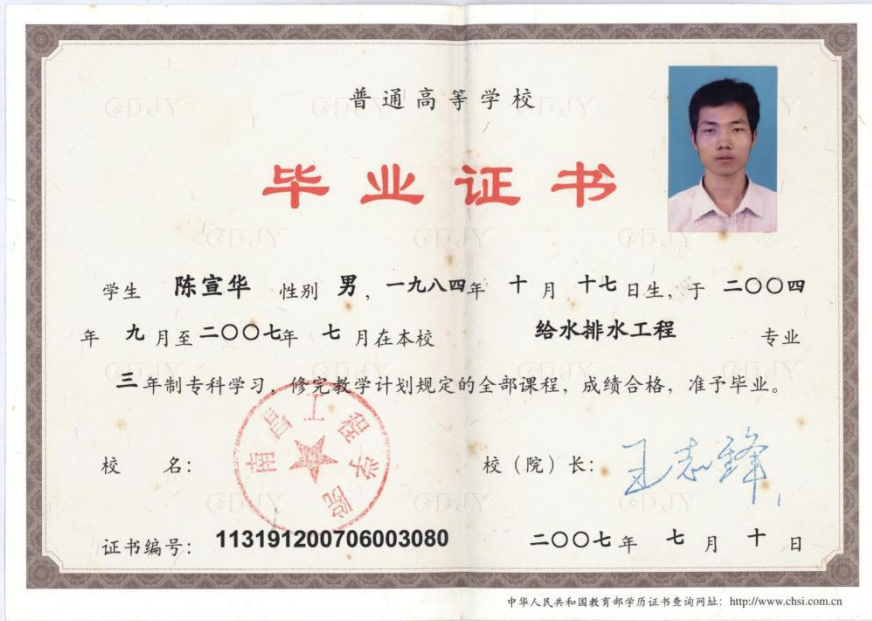 普通高等学校
毕业证书
学生 陈宣华 性别 男，一九八四年 十 月 十七 日生，于 二〇〇四
年 九 月至 二〇〇七年 七 月在本校 给水排水工程 专业
三 年制专科学习，修完教学计划规定的全部课程，成绩合格，准予毕业。
南昌工程学院
校 名： 校（院）长：王志锋
证书编号： 113191200706003080 二〇〇七 年 七 月 十 日
中华人民共和国教育部学历证书查询网址： http://www.chsi.com.cn
GDJY